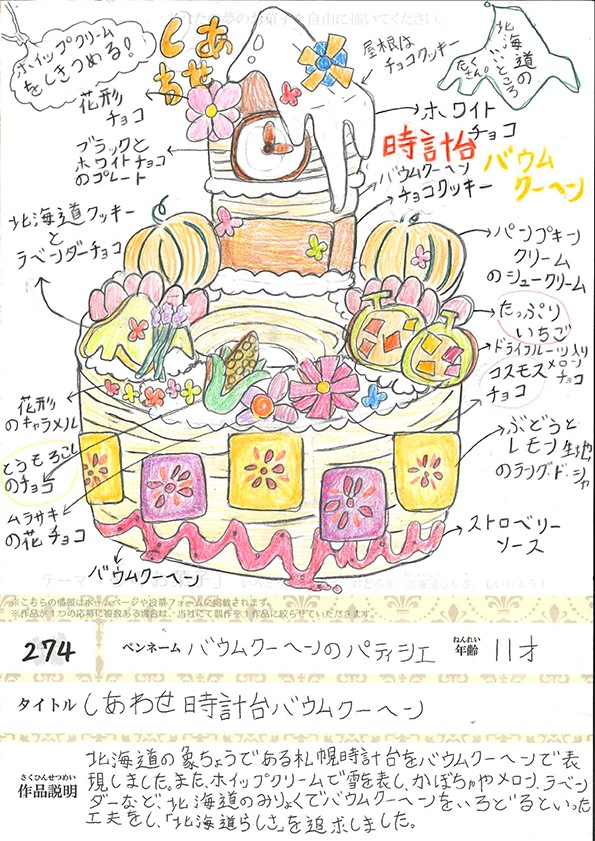 ホイップクリーム
をしきつめる!
しあわせ
屋根は
チョコクッキー
北海道の
いいところ
たくさん。
花形
チョコ
ブラックと
ホワイトチョコ
のプレート
ホワイト
チョコ
時計台
バウム
クーヘン
バウムクーヘン
チョコクッキー
北海道クッキー
と
ラベンダーチョコ
パンプキン
クリーム
のシュークリーム
たっぷり
いちご
ドライフルーツ入り
メロン
チョコ
コスモス
チョコ
花形
のキャラメル
ぶどうと
レモン生地
のラングドシャ
とうもろこし
のチョコ
ムラサキ
の花チョコ
ストロベリー
ソース
バウムクーヘン
※こちらの情報はホームページや投票フォームに掲載されます。
※作品が1つの応募に複数ある場合は、当社にて製作を1作品に絞らせていただきます。
274
ペンネーム バウムクーヘンのパティシエ
ねんれい
年齢 11才
タイトル しあわせ時計台バウムクーヘン
さくひんせつめい
作品説明
北海道の象ちょうである札幌時計台をバウムクーヘンで表
現しました。また、ホイップクリームで雪を表し、かぼちゃやメロン、ラベン
ダーなど、北海道のみりょくでバウムクーヘンをいろどるといった
工夫をし、「北海道らしさ」を追求しました。